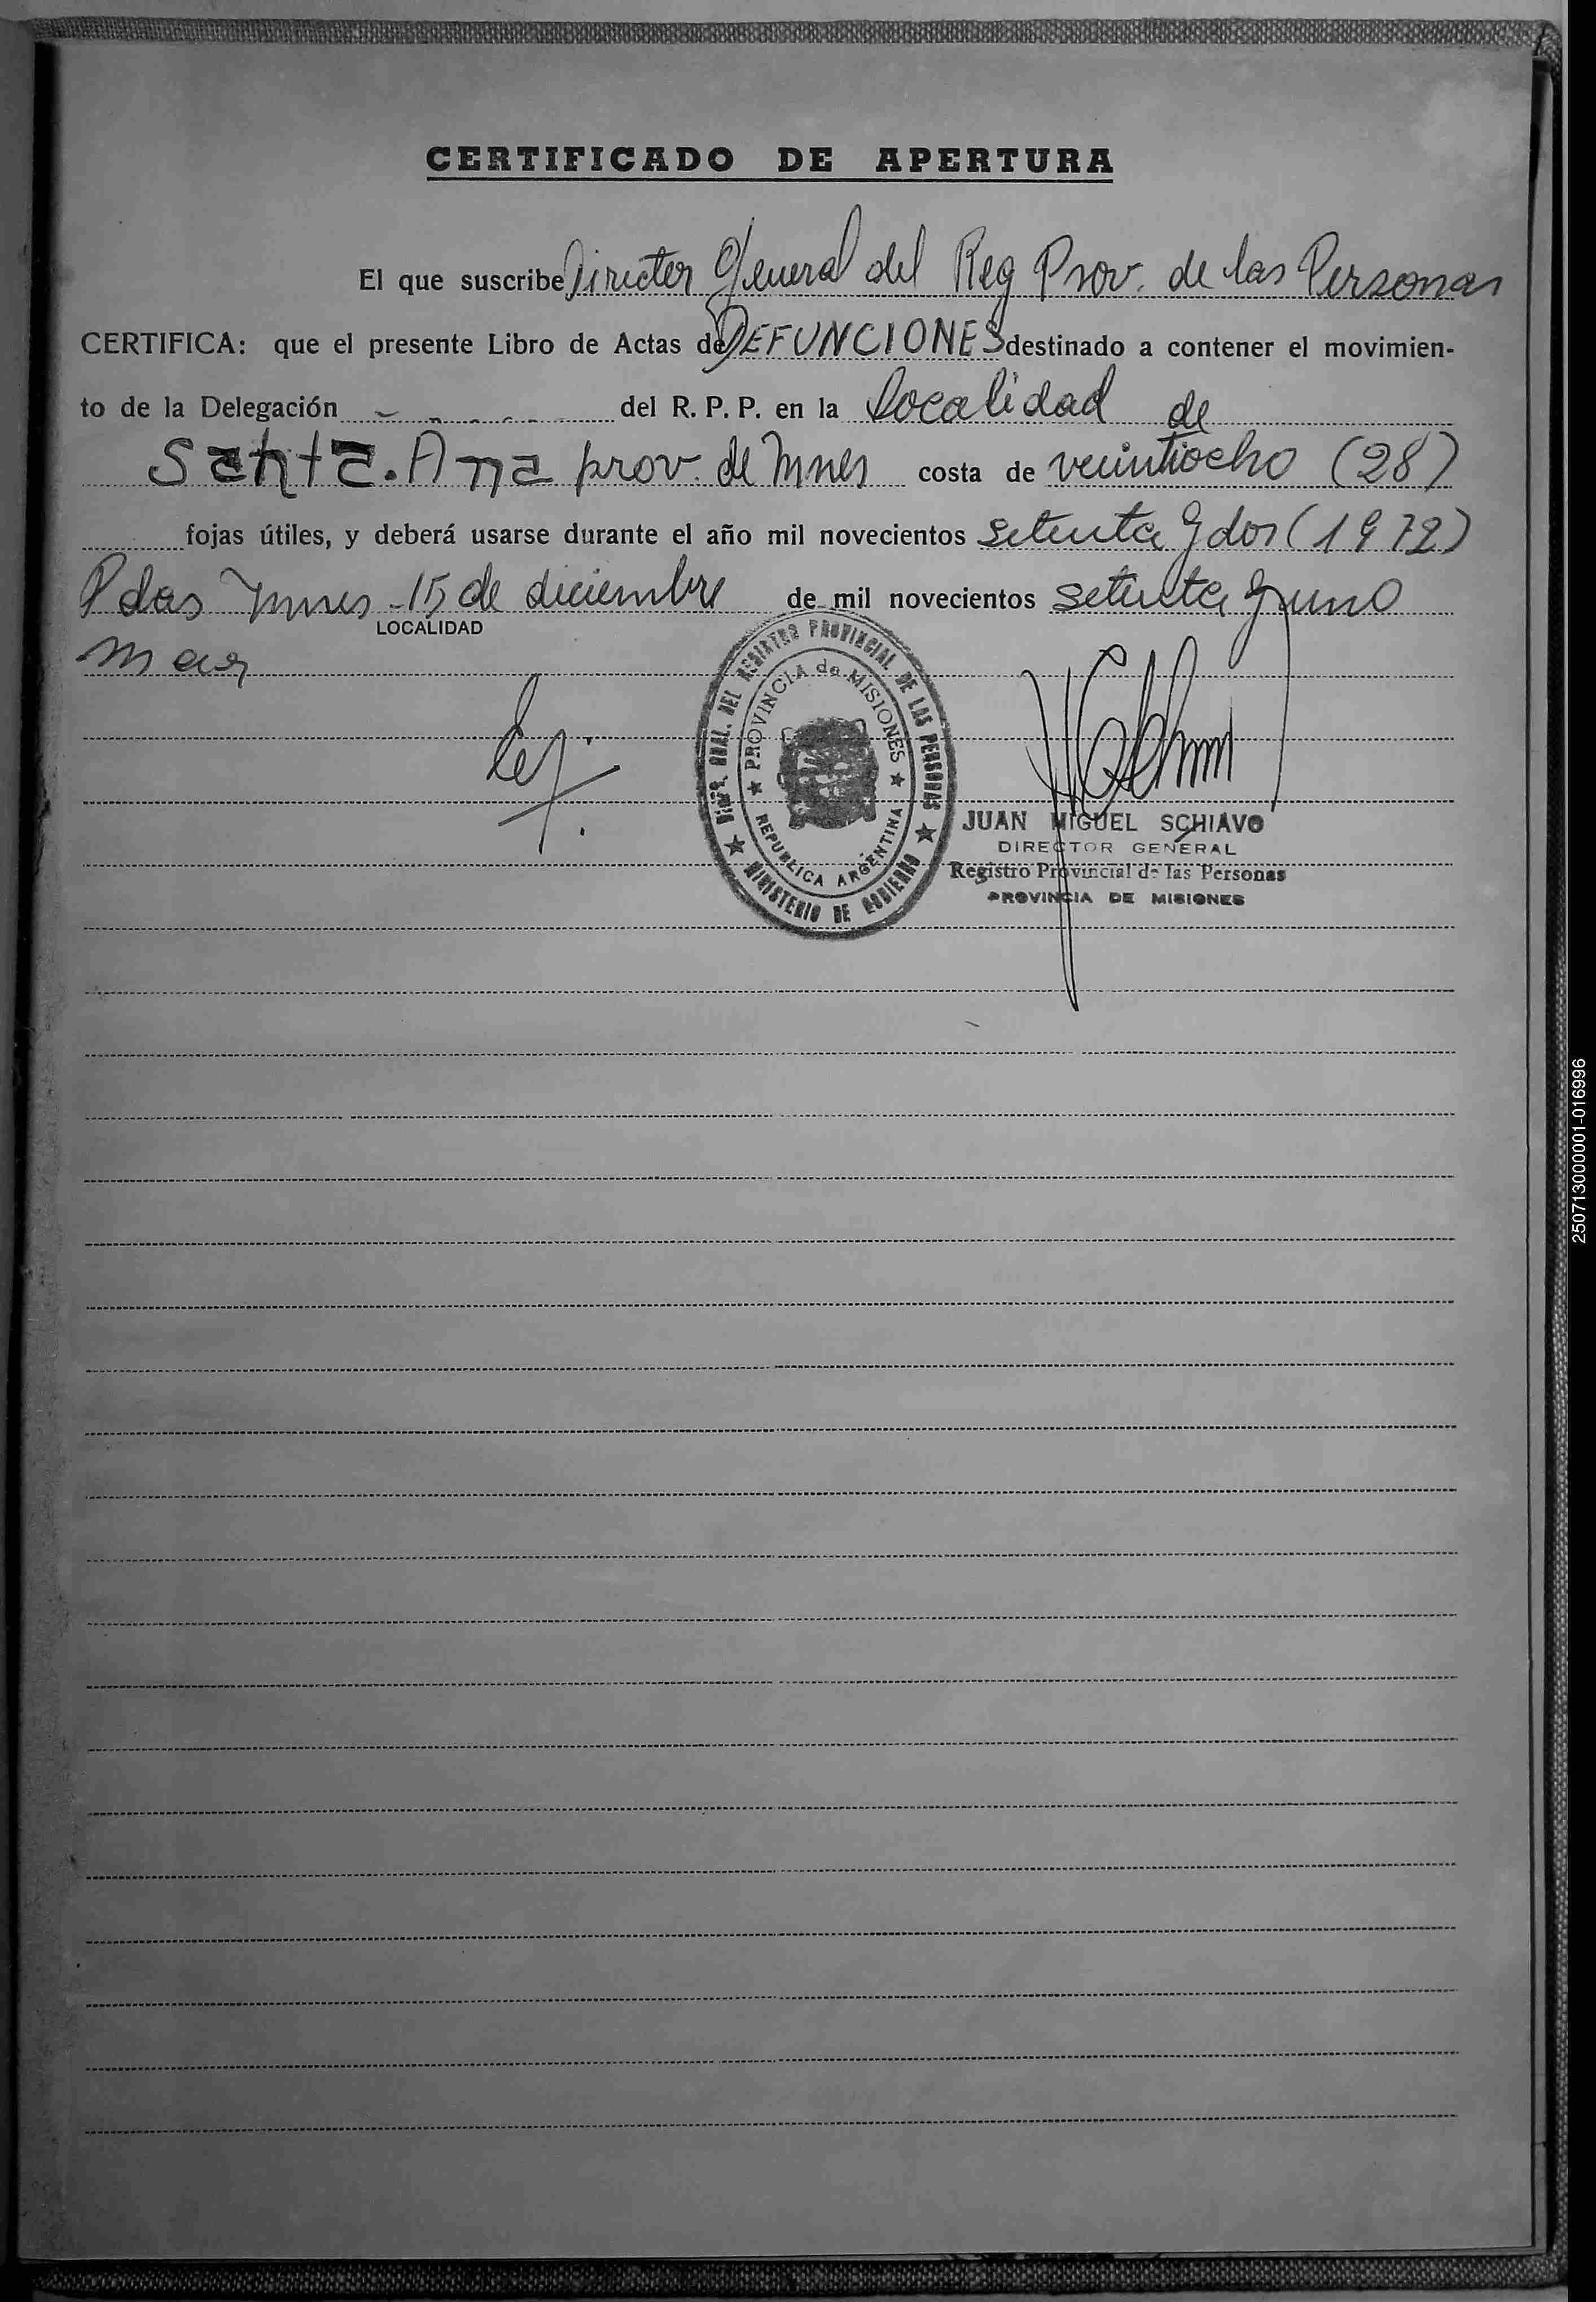 CERTIFICADO DE APERTURA
El que suscribe Director General del Reg Prov. de las Personas
CERTIFICA: que el presente Libro de Actas de DEFUNCIONES destinado a contener el movimien-
to de la Delegación del R. P. P. en la localidad de
Santa. Ana prov. de Mnes costa de veintiocho (28)
fojas útiles, y deberá usarse durante el año mil novecientos setenta y dos (1972)
Pdas Mnes - 15 de diciembre de mil novecientos setenta y uno
LOCALIDAD
DIREC. GRAL. DEL REGISTRO PROVINCIAL DE LAS PERSONAS
PROVINCIA de MISIONES
REPUBLICA ARGENTINA
MINISTERIO DE GOBIERNO
JUAN MIGUEL SCHIAVO
DIRECTOR GENERAL
Registro Provincial de las Personas
PROVINCIA DE MISIONES
250713000001-016996